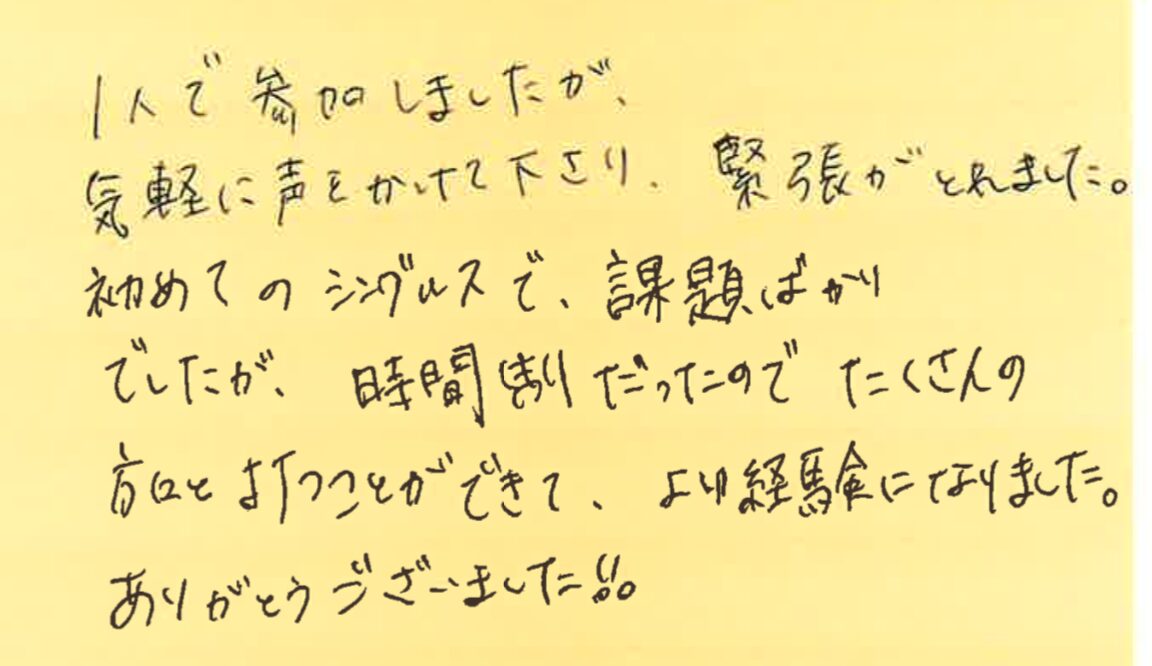 1人で参加しましたが、
気軽に声をかけて下さり、緊張がとれました。
初めてのシングルスで、課題ばかり
でしたが、時間割だったので たくさんの
方と打つことができて、より経験になりました。
ありがとうございました!!